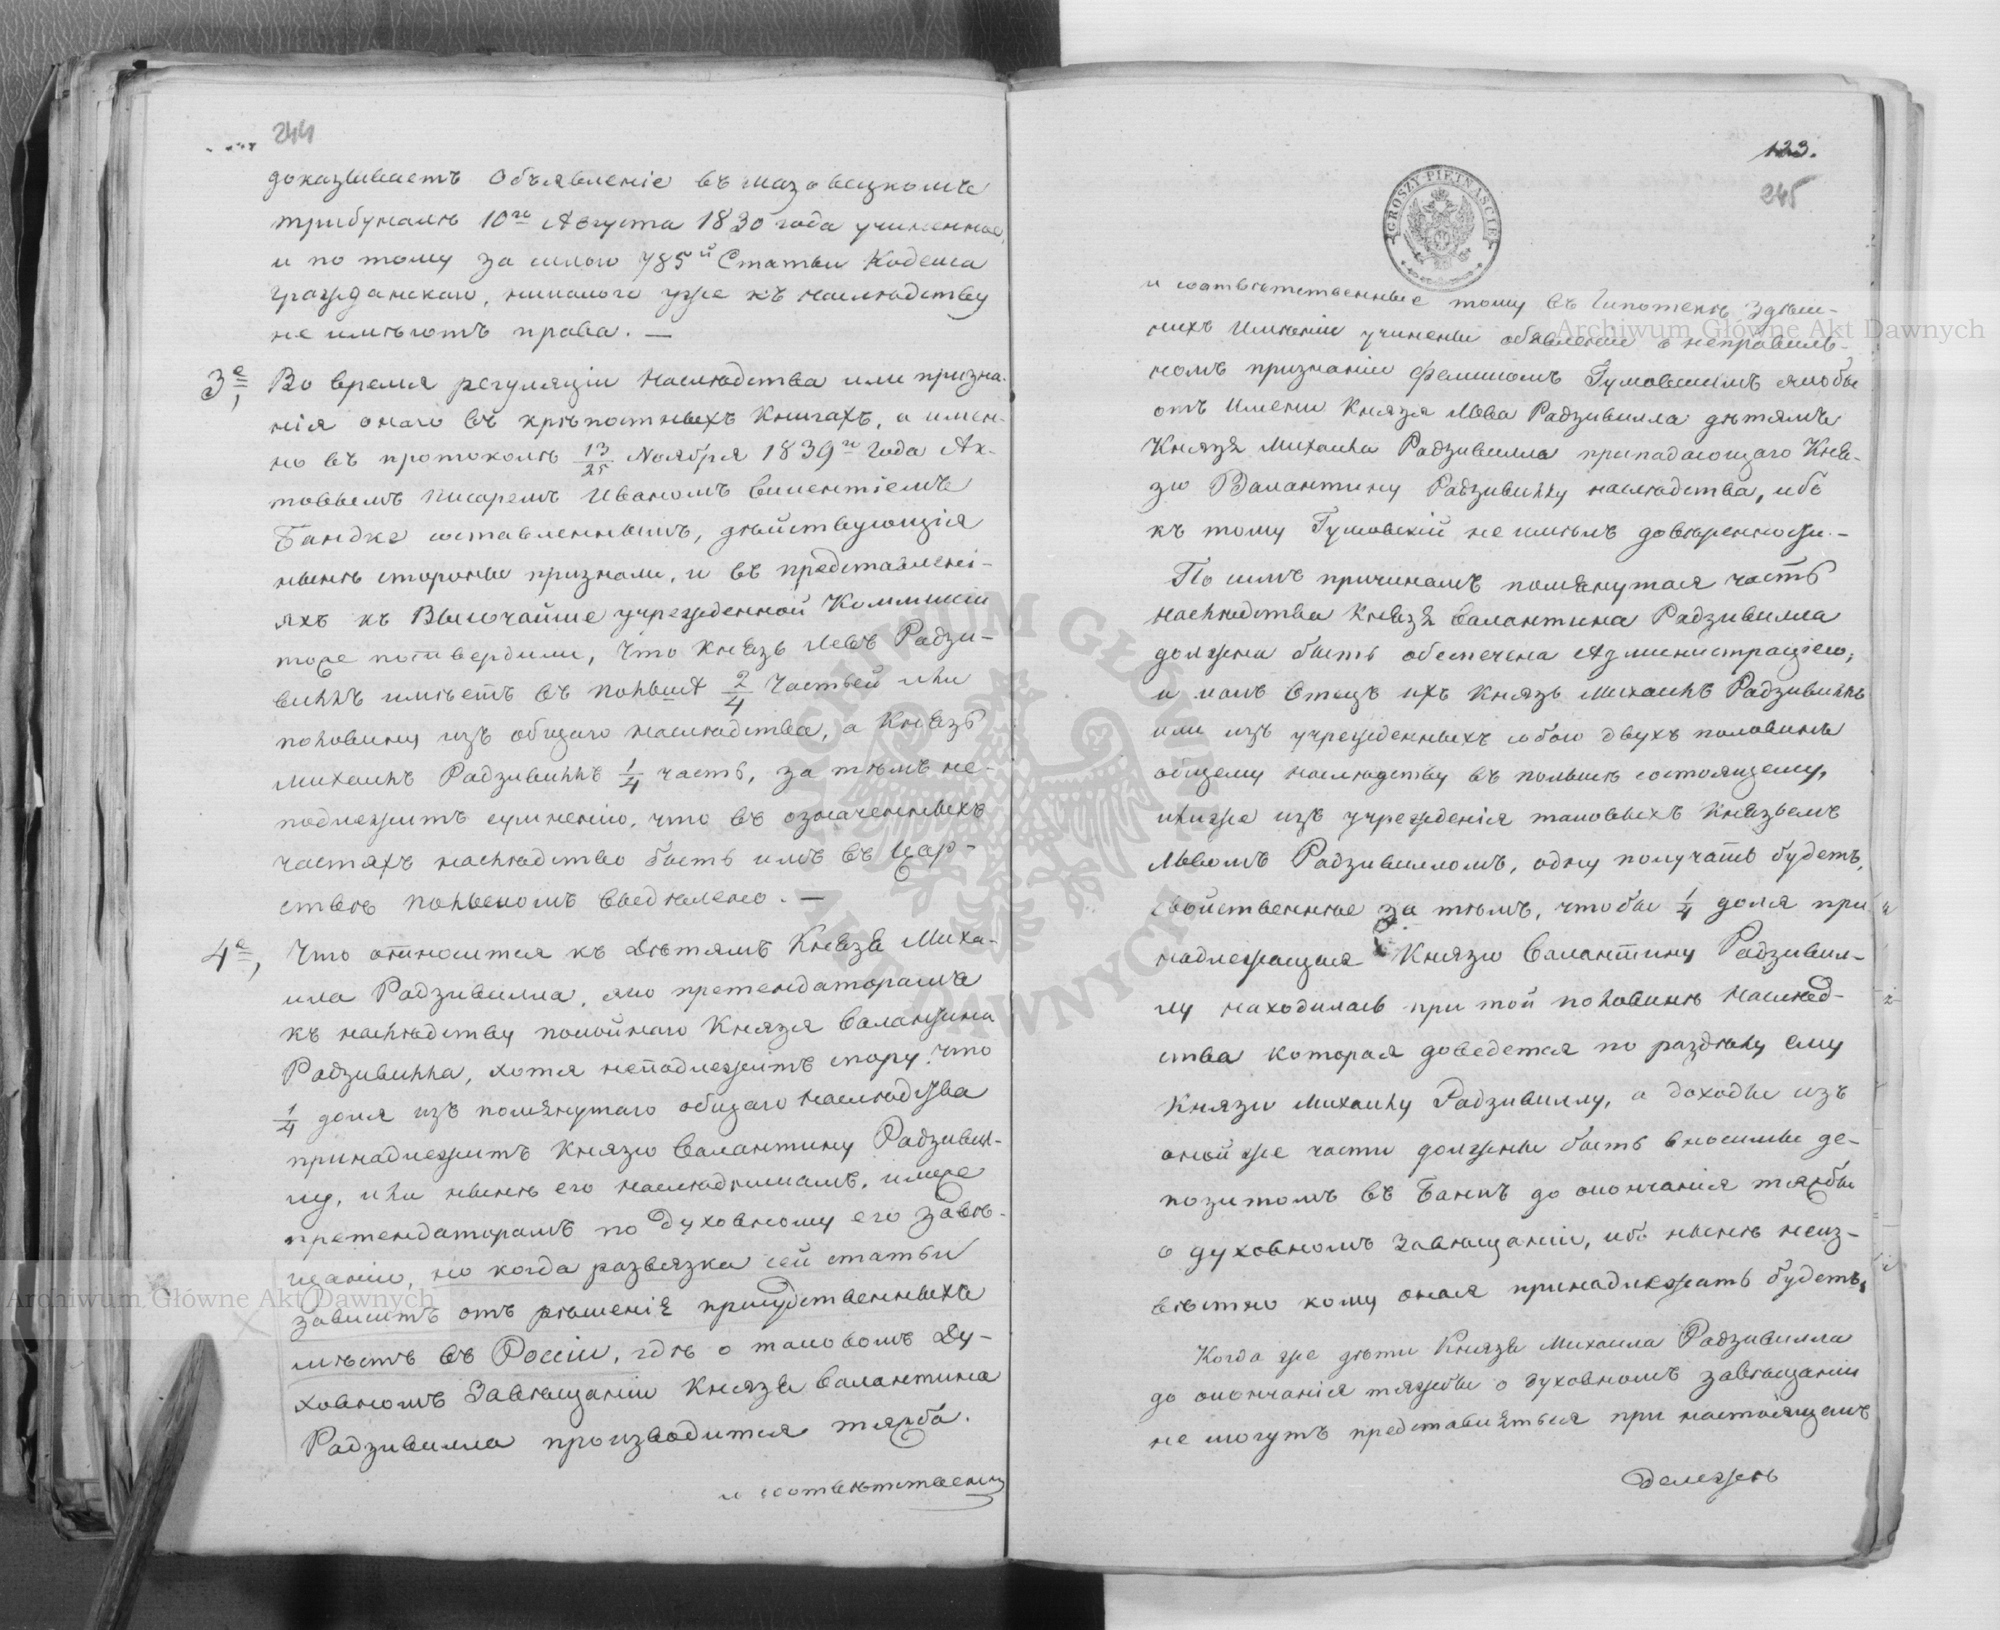 244
доказываетъ Объявленіе въ Мазовецкомъ
трибуналѣ 10го Августа 1830 года учиненное,
и по тому за силою 785й Статьи Кодекса
Гражданскаго, никакого уже къ наслѣдству
не имѣютъ права. —
3е, Во время регуляціи наслѣдства или призна-
нія онаго въ крѣпостныхъ Книгахъ, а имен-
но въ протоколѣ 13/25 Ноября 1839го года Ак-
товымъ Писаремъ Иваномъ Викентіемъ
Бандке составленнымъ, дѣйствующія
нынѣ стороны признали, и въ представлені-
яхъ къ Высочайше учрежденной Коммисіи
тоже потвердили, что Князь Левъ Радзи-
виллъ имѣетъ въ Польшѣ 2/4 частей или
половину изъ общаго наслѣдства, а Князь
Михаилъ Радзивиллъ 1/4 часть, за тѣмъ не-
подлежитъ сумненію, что въ означенныхъ
частяхъ наслѣдство быть имъ въ Цар-
ствѣ Польскомъ выдѣлено. —
4е, Что относится къ Дѣтямъ Князя Миха-
ила Радзивилла, яко претендаторамъ
къ наслѣдству покойнаго Князя Валантина
Радзивилла, хотя неподлежитъ спору что
1/4 доля изъ помянутаго общаго наслѣдства
принадлежитъ Князю Валантину Радзивил-
лу, или нынѣ его наслѣдникамъ, или же
претендаторамъ по Духовному его Завѣ-
щанію, но когда развязка сей статьи
зависитъ отъ рѣшенія присудственныхъ
мѣстъ въ Россіи, гдѣ о таковомъ Ду-
ховномъ Завѣщаніи Князя Валантина
Радзивилла производится тяжба.
и соотвѣтственны
123.
245
GROSZY PIĘTNAŚCIE
и соотвѣтственные тому въ Гипотекѣ здѣш-
нихъ Имѣніи учинены объявленіи о неправиль-
номъ признаніи Феликсомъ Гумовскимъ якобы
отъ Имени Князя Льва Радзивилла дѣтямъ
Князя Михаила Радзивилла припадающаго Кня-
зю Валантину Радзивиллу наслѣдства, ибо
къ тому Гумовскій не имѣлъ довѣренности. —
По симъ причинамъ помянутая часть
наслѣдства Князя Валантина Радзивилла
должна быть обеспечена Администраціею,
и какъ Отецъ ихъ Князь Михаилъ Радзивиллъ
или изъ учрежденныхъ собою двухъ половинъ
общему наслѣдству въ Польшѣ состоящему,
или же изъ учрежденія таковыхъ Княземъ
Львомъ Радзивилломъ, одну получать будетъ,
свойственное за тѣмъ, чтобы 1/4 доля при
надлежащая Князю Валантину Радзивил-
лу находилась при той половинѣ наслѣд-
ства которая доведется по раздѣлу ему
Князю Михаилу Радзивиллу, а доходы изъ
оной же части должны быть вносимы де-
позитомъ въ Банкъ до окончанія тяжбы
о духовномъ Завѣщаніи, ибо нынѣ неиз-
вѣстно кому оная принадлежать будетъ.
Когда же дѣти Князя Михаила Радзивилла
до окончанія тяжбы о духовномъ завѣщаніи
не могутъ представляться при настоящемъ
дележѣ
Archiwum Główne Akt Dawnych
Archiwum Główne Akt Dawnych
ARCHIWUM GŁÓWNE AKT DAWNYCH